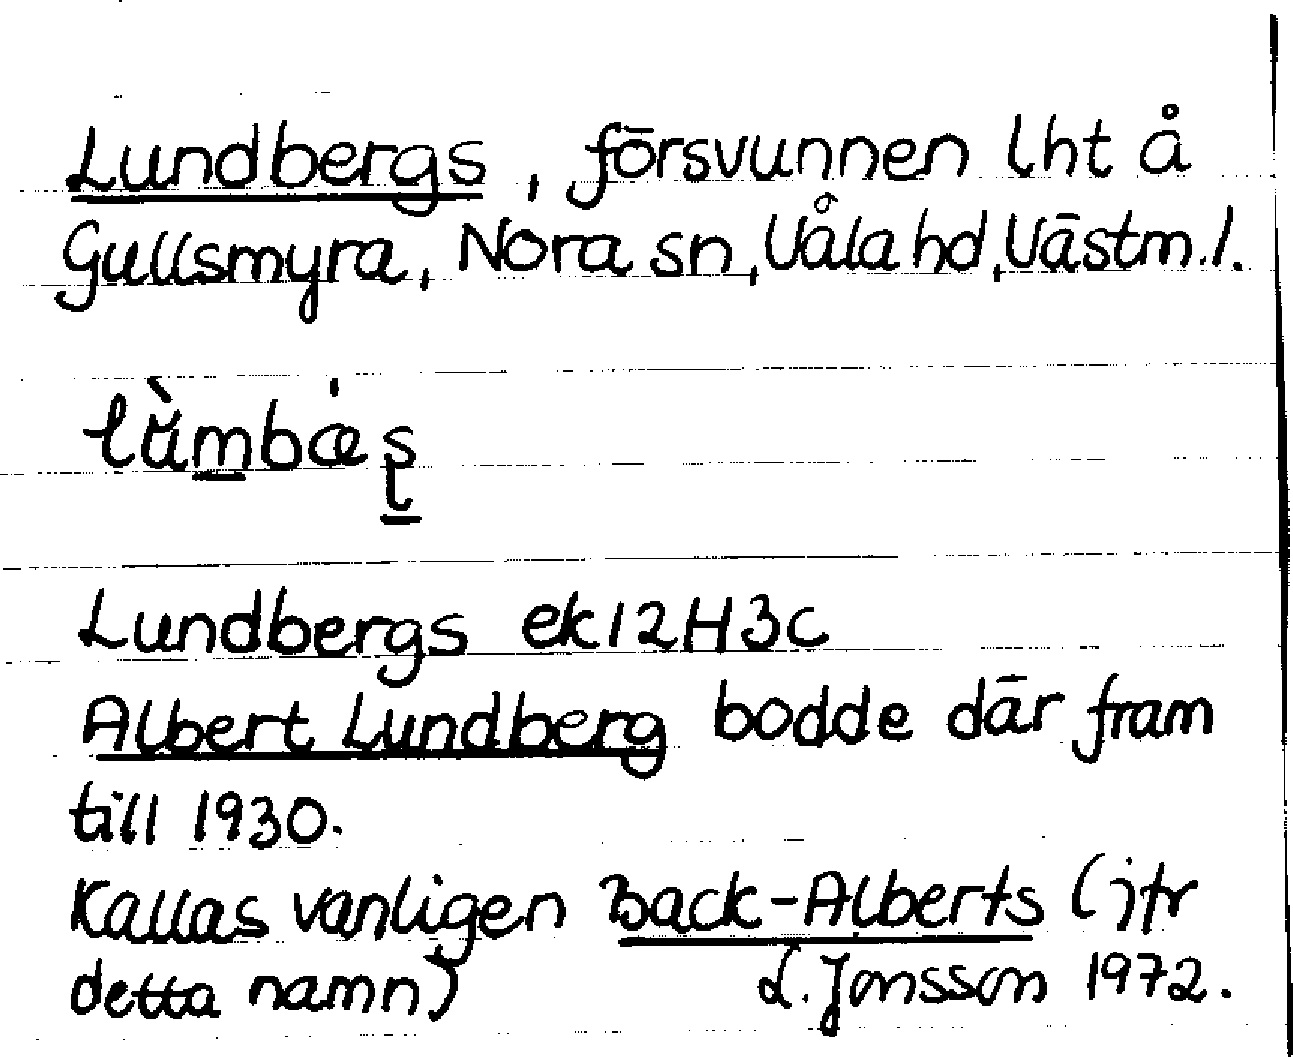 Lundbergs, försvunnen lht å
Gullsmyra, Nora sn, Våla hd, Västm. l.
Lundbergs ek 12H3c
Albert Lundberg bodde där fram
till 1930.
Kallas vanligen Back-Alberts (jfr
detta namn)
L. Jonsson 1972.